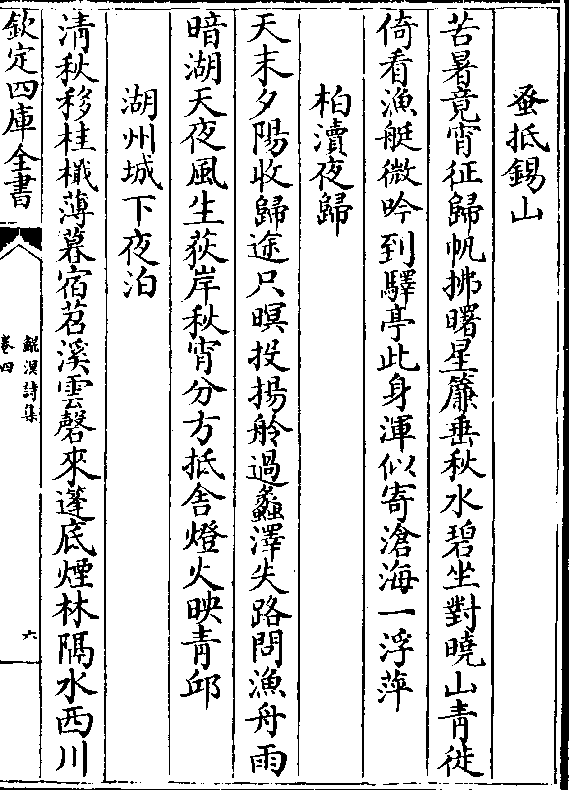 蚤抵錫山
苦暑竟宵征歸帆拂曙星簾垂秋水碧坐對曉山青徙
倚看漁艇微吟到驛亭此身渾似寄滄海一浮萍
柏瀆夜歸
天末夕陽收歸途只暝投揚舲過蠡澤失路問漁舟雨
暗湖天夜風生荻岸秋宵分方抵舎燈火映青邱
湖州城下夜泊
清秋移桂檝薄暮宿苕溪雲磬來蓬底煙林隔水西川
欽定四庫全書
鯤溟詩集
卷四
六